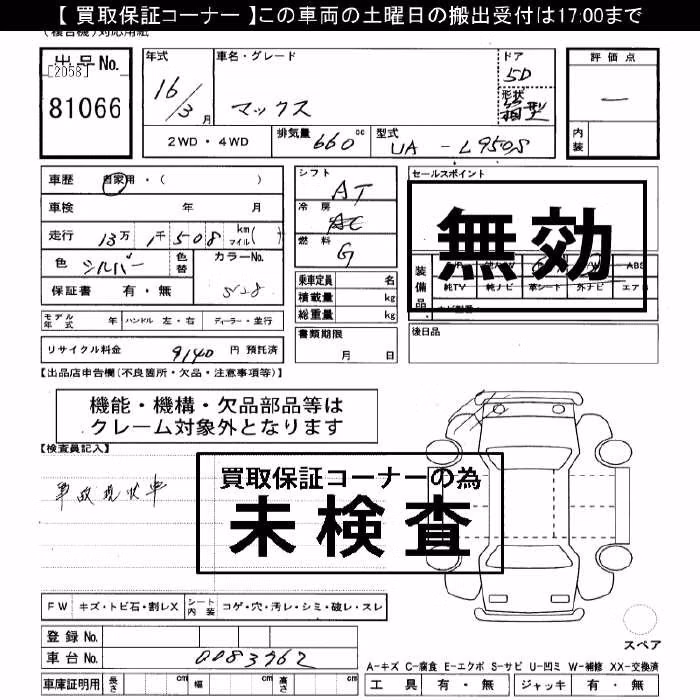 【 買取保証コーナー 】この車両の土曜日の搬出受付は17:00まで
(複合機)対応用紙
出品No.
[2058]
81066
年式
16/3 月
車名・グレード
マックス
ドア
5D
形状
箱型
評価点
―
内装
2WD・4WD
排気量 660 cc
型式 UA - L950S
車歴 自家用・( )
車検 年 月
走行 13万 1千508 km マイル( )
色 シルバー 色替
カラーNo.
S28
保証書 有・無
モデル年式 年 ハンドル 左・右 ディーラー・並行
リサイクル料金 9140 円 預託済
シフト
AT
冷房
AC
燃料
G
乗車定員 名
積載量 kg
総重量 kg
書類期限
月 日
セールスポイント
無効
装備品
ABS
純TV 純ナビ 革シート 外ナビ エアB
後日品
【出品店申告欄(不良箇所・欠品・注意事項等)】
機能・機構・欠品部品等は
クレーム対象外となります
【検査員記入】
事故現状車
買取保証コーナーの為
未検査
FW キズ・トビ石・割レX シート内装 コゲ・穴・汚レ・シミ・破レ・スレ
登録No.
車台No. 0083962
車庫証明用 長さ cm 幅 cm 高さ cm
スペア
A-キズ C-腐食 E-エクボ S-サビ U-凹ミ W-補修 XX-交換済
工具 有・無 ジャッキ 有・無